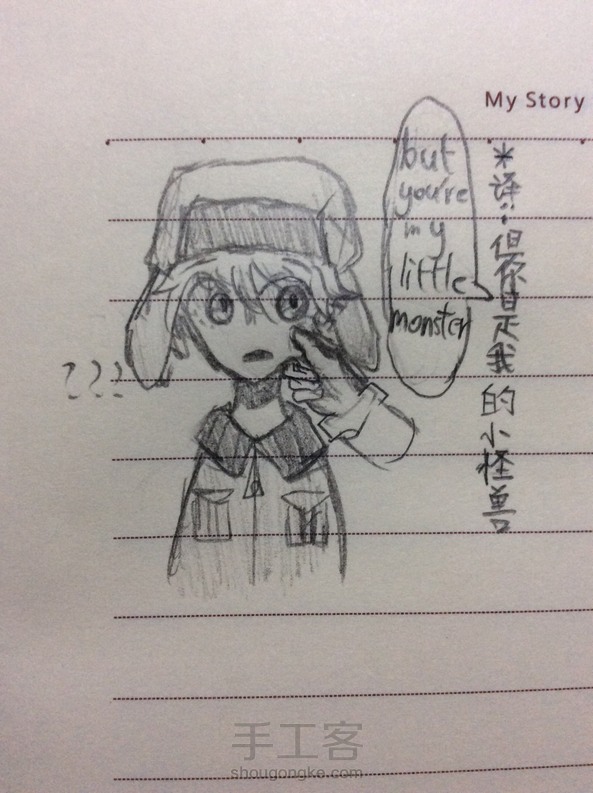 My Story
but
you're
my
little
monster
*译：但你是我的小怪兽
???
手工客
shougongke.com